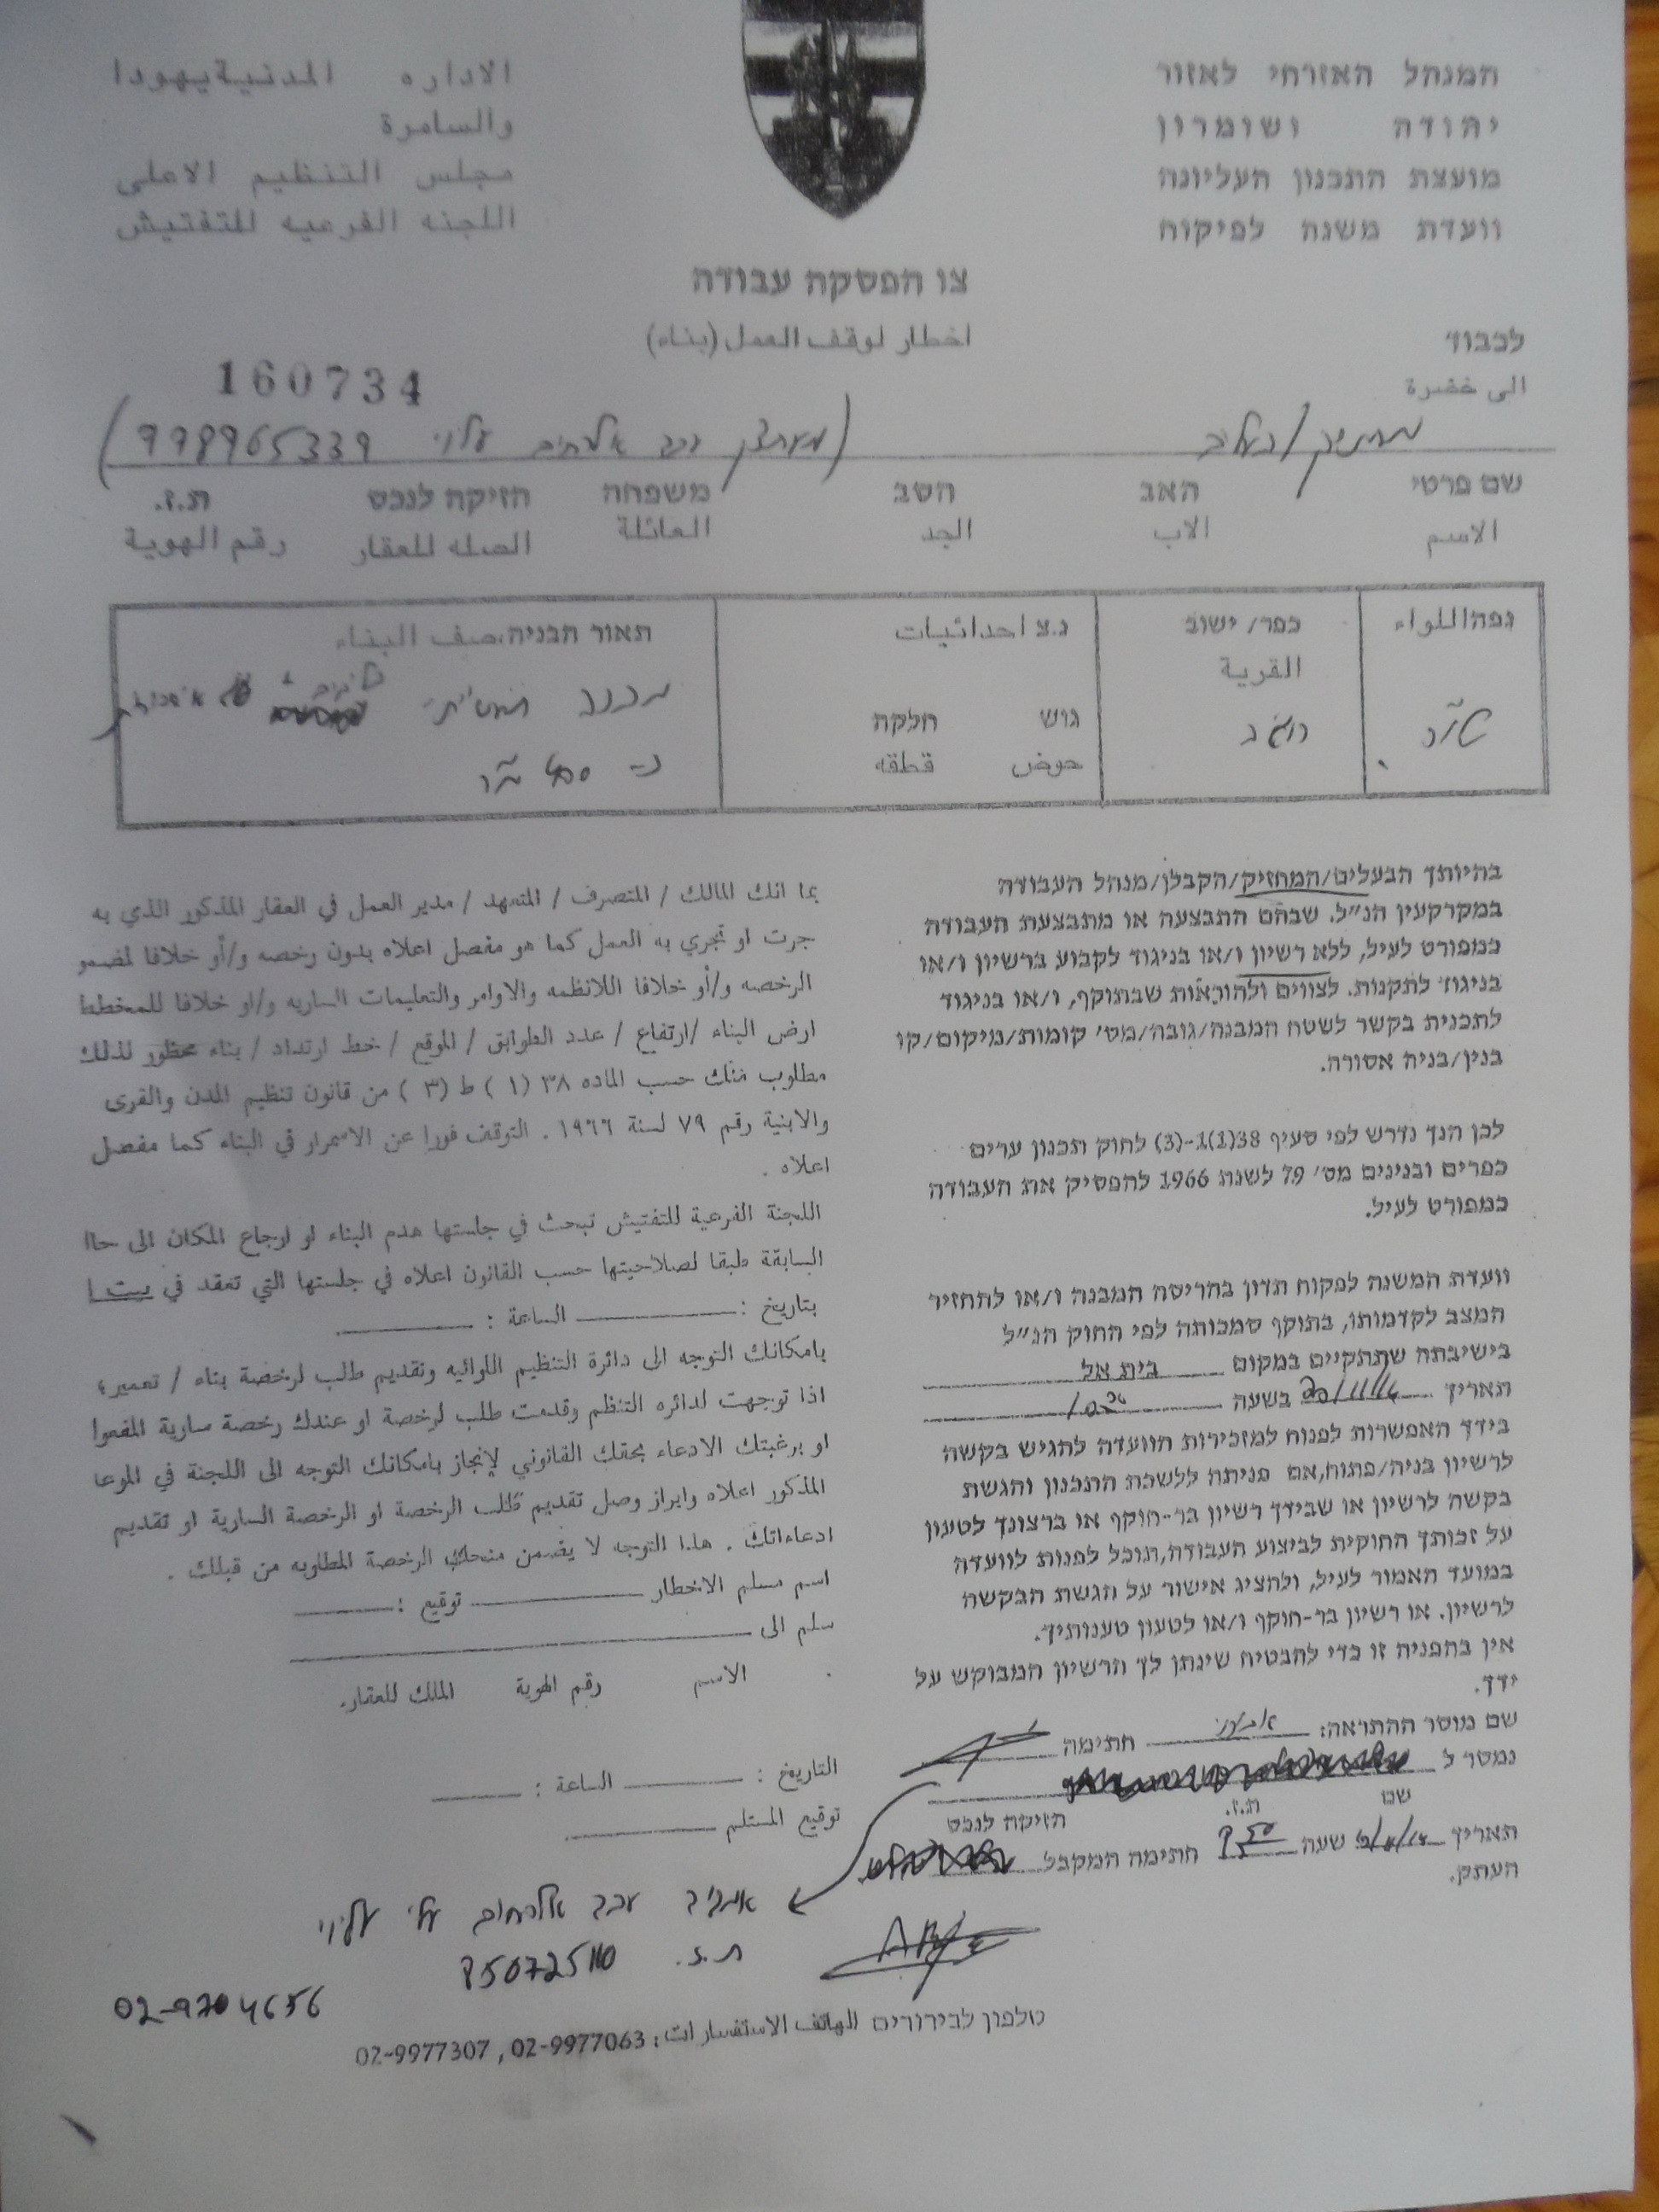 המנהל האזרחי לאזור
יהודה ושומרון
מועצת התכנון העליונה
וועדת משנה לפיקוח
الاداره المدنية يهودا
والسامرة
مجلس التنظيم الاعلى
اللجنه الفرعيه للتفتيش
צו הפסקת עבודה
اخطار لوقف العمل (بناء)
לכבוד
الى حضرة
160734
מחזיק/בעלים
998965339
שם פרטי האב הסב משפחה חזיקה לנכס ת.ז.
الاسم الاب الجد العائلة الصله للعقار رقم الهوية
נפה اللواء
כפר/ ישוב
القرية
נ.צ احداثيات
גוש חלקה
حوض قطقه
תאור הבניה، صف البناء
מבנה
בהיותך הבעלים/המחזיק/הקבלן/מנהל העבודה
במקרקעין הנ״ל. שבהם התבצעה או מתבצעת העבודה
כמפורט לעיל, ללא רשיון ו/או בניגוד לקבוע ברשיון ו/או
בניגוד לתקנות. לצווים ולהוראות שבתוקף, ו/או בניגוד
לתכנית בקשר לשטח המבנה/גובה/מס׳ קומות/מיקום/קו
בנין/בניה אסורה.
לכן הנך נדרש לפי סעיף 38(1)1-(3) לחוק תכנון ערים
כפרים ובנינים מס׳ 79 לשנת 1966 להפסיק את העבודה
כמפורט לעיל.
וועדת המשנה לפקוח תדון בהריסת המבנה ו/או להחזיר
המצב לקדמותו, בתוקף סמכותה לפי החוק הנ״ל
בישיבתה שתתקיים במקום בית אל
תאריך 20/11/14 בשעה 10:30
בידך האפשרות לפנות למזכירות הוועדה להגיש בקשה
לרשיון בניה/פתוח,אם פניתה ללשכת התכנון והגשת
בקשה לרשיון או שבידך רשיון בר-תוקף או ברצונך לטעון
על זכותך החוקית לביצוע העבודה,תוכל לפנות לוועדה
במועד האמור לעיל, ולהציג אישור על הגשת הבקשה
לרשיון. או רשיון בר-תוקף ו/או לטעון טענותיך.
אין בהפניה זו כדי להבטיח שינתן לך הרשיון המבוקש על
ידך.
שם מוסר ההתראה: חתימה
נמסר ל
שם ת.ז. הזיקה לנכס
תאריך שעה 9:50 חתימת המקבל
העתק.
بما انك المالك / المتصرف / المتعهد / مدير العمل في العقار المذكور الذي به
جرت او تجري به العمل كما هو مفصل اعلاه بدون رخصه و/أو خلافا لمضمو
الرخصه و/أو خلافا اللانظمه والاوامر والتعليمات الساريه و/او خلافا للمخطط
ارض البناء /ارتفاع / عدد الطوابق / الموقع / خط ارتداد / بناء محظور لذلك
مطلوب منك حسب الماده ٣٨ (١ ) ط (٣ ) من قانون تنظيم المدن والقرى
والابنية رقم ٧٩ لسنة ١٩٦٦ . التوقف فورا عن الاسمرار في البناء كما مفصل
اعلاه .
اللجنة الفرعية للتفتيش تبحث في جلستها هدم البناء او ارجاع المكان الى حاا
السابقة طبقا لصلاحيتها حسب القانون اعلاه في جلستها التي تعقد في بيت ا
بتاريخ : الساعة :
بامكانك التوجه الى دائرة التنظيم اللوائيه وتقديم طلب لرخصة بناء / تعمير؛
اذا توجهت لدائره التنظم وقدمت طلب لرخصة او عندك رخصة سارية المفعوا
او برغبتك الادعاء بحقك القانوني لإنجاز بامكانك التوجه الى اللجنة في الموعا
المذكور اعلاه وابراز وصل تقديم طلب الرخصة او الرخصة السارية او تقديم
ادعاءاتك . هذا التوجه لا يضمن منحك الرخصة المطلوبه من قبلك .
اسم مسلم الاخطار توقيع :
سلم الى
الاسم رقم الهوية المالك للعقار.
التاريخ : الساعة :
توقيع المستلم
ת.ז.
02-9704656
טלפון לבירורים الهاتف الاستفسارات: 02-9977063 , 02-9977307